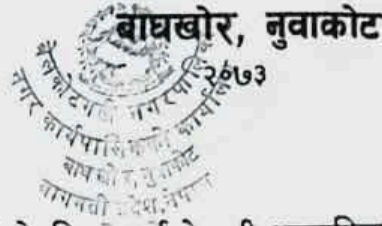 बाघखोर, नुवाकोट
२०७३
बेलकोटगढी नगरपालिका
नगर कार्यपालिकाको कार्यालय
बाघखोर, नुवाकोट
बागमती प्रदेश, नेपाल